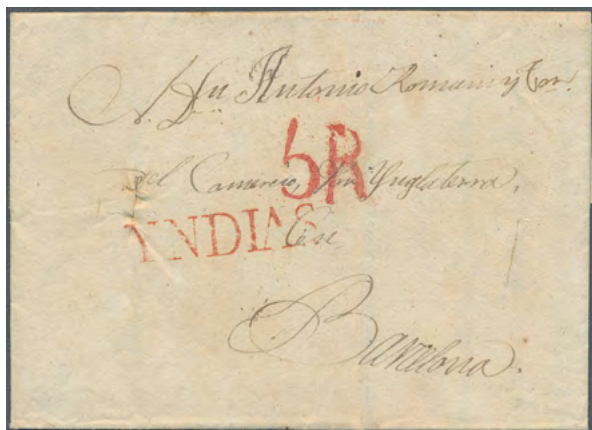 A Dn. Antonio Romani y Com.
5R
del Comercio, Por Ynglaterra,
YNDIAS
En
Barcelona.